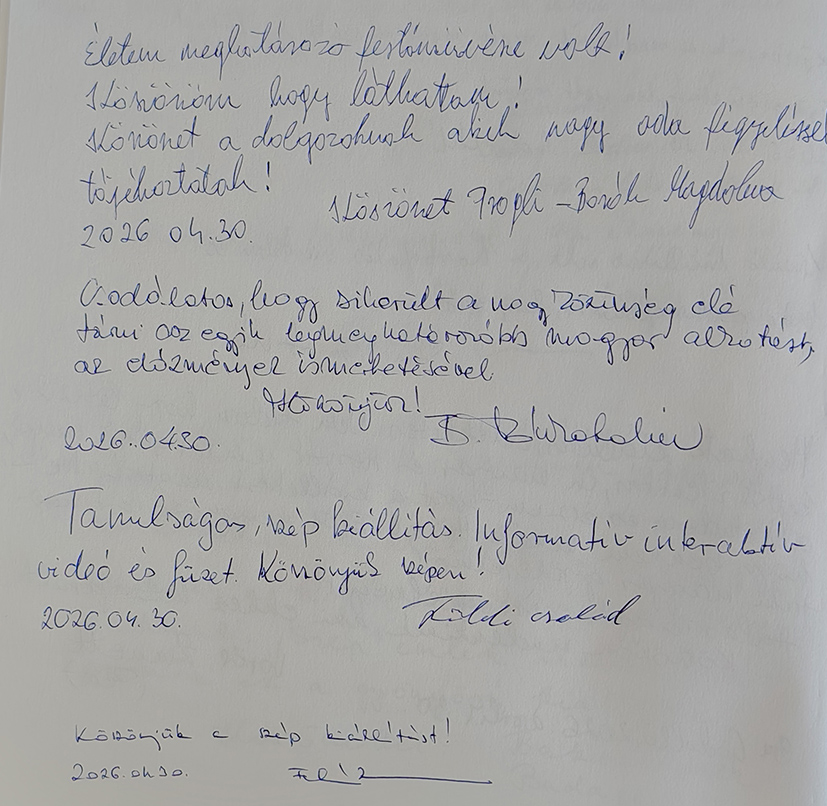 Életem meghatározó festőművésze volt!
Köszönöm hogy láthattam!
Köszönet a dolgozóknak akik nagy oda figyeléssel
tájékoztattak!
Köszönet - Magdolna
2026 04.30.
Csodálatos, hogy sikerült a nagyközönség elé
tárni az egyik legmeghatározóbb magyar alkotást,
az előzmények ismertetésével.
Köszönjük!
B.
2026.04.30.
Tanulságos, szép kiállítás. Informatív interaktív
videó és füzet. Köszönjük szépen!
2026.04.30.
Földi család
Köszönjük a szép kiállítást!
2026.04.30.